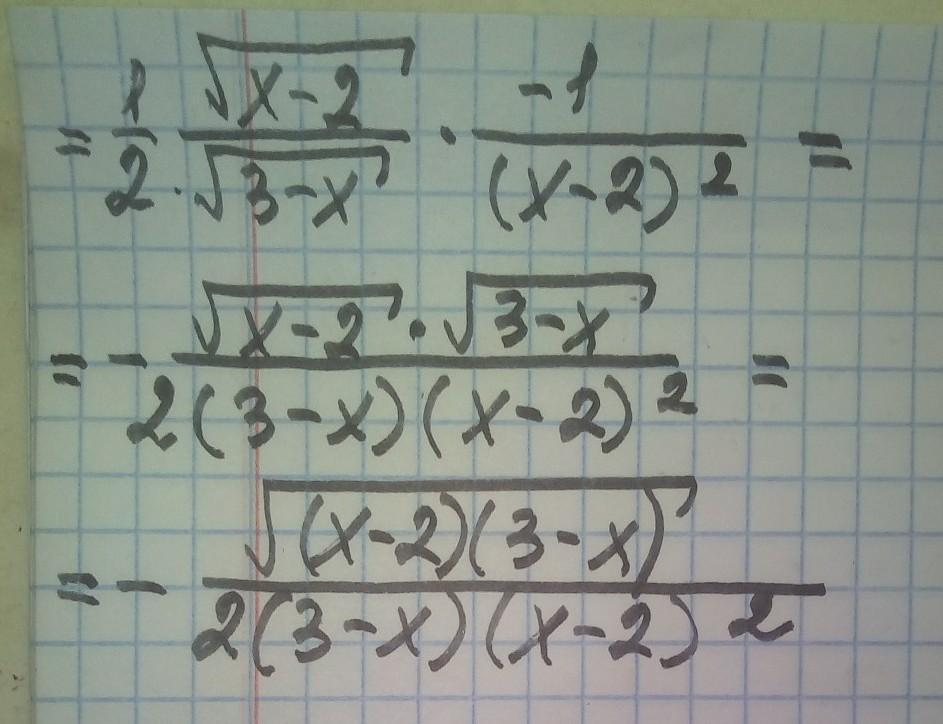 = 1/2 · √(x-2)/√(3-x) · -1/(x-2)² =
= - √(x-2) · √(3-x) / 2(3-x)(x-2)² =
= - √((x-2)(3-x)) / 2(3-x)(x-2)²